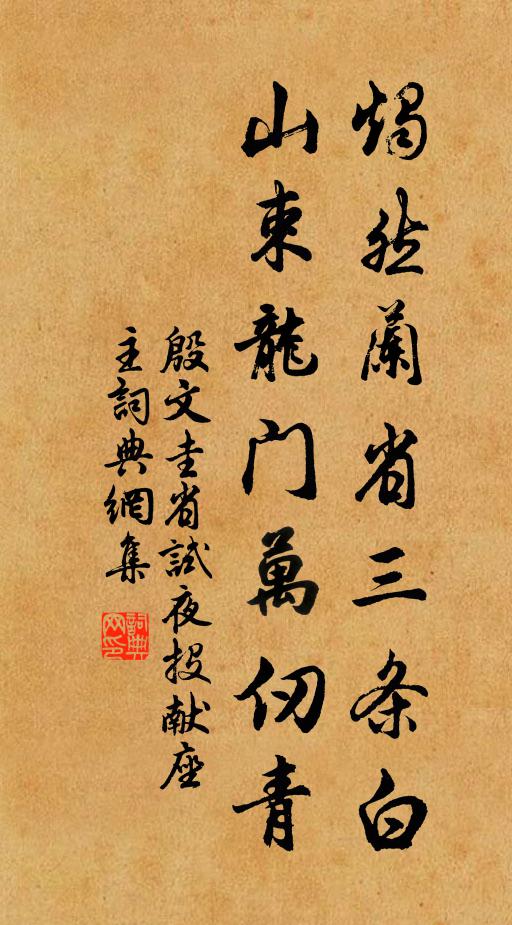 燭然蘭省三条白
山束龍门萬仞青
殷文圭省試夜投献座
主詞典網集
詞典网印